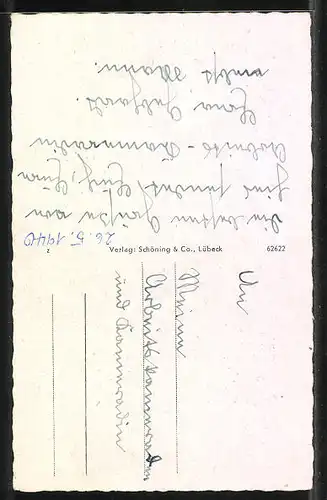 Die besten Grüße von
hier sendet Euch, Eure
Arbeits-Kammeradin
Hans
nebst Mann.
26.5.1940
2
Verlag: Schöning & Co., Lübeck
62622
An
Meine
Arbeitskammeraden
und Kammeradin